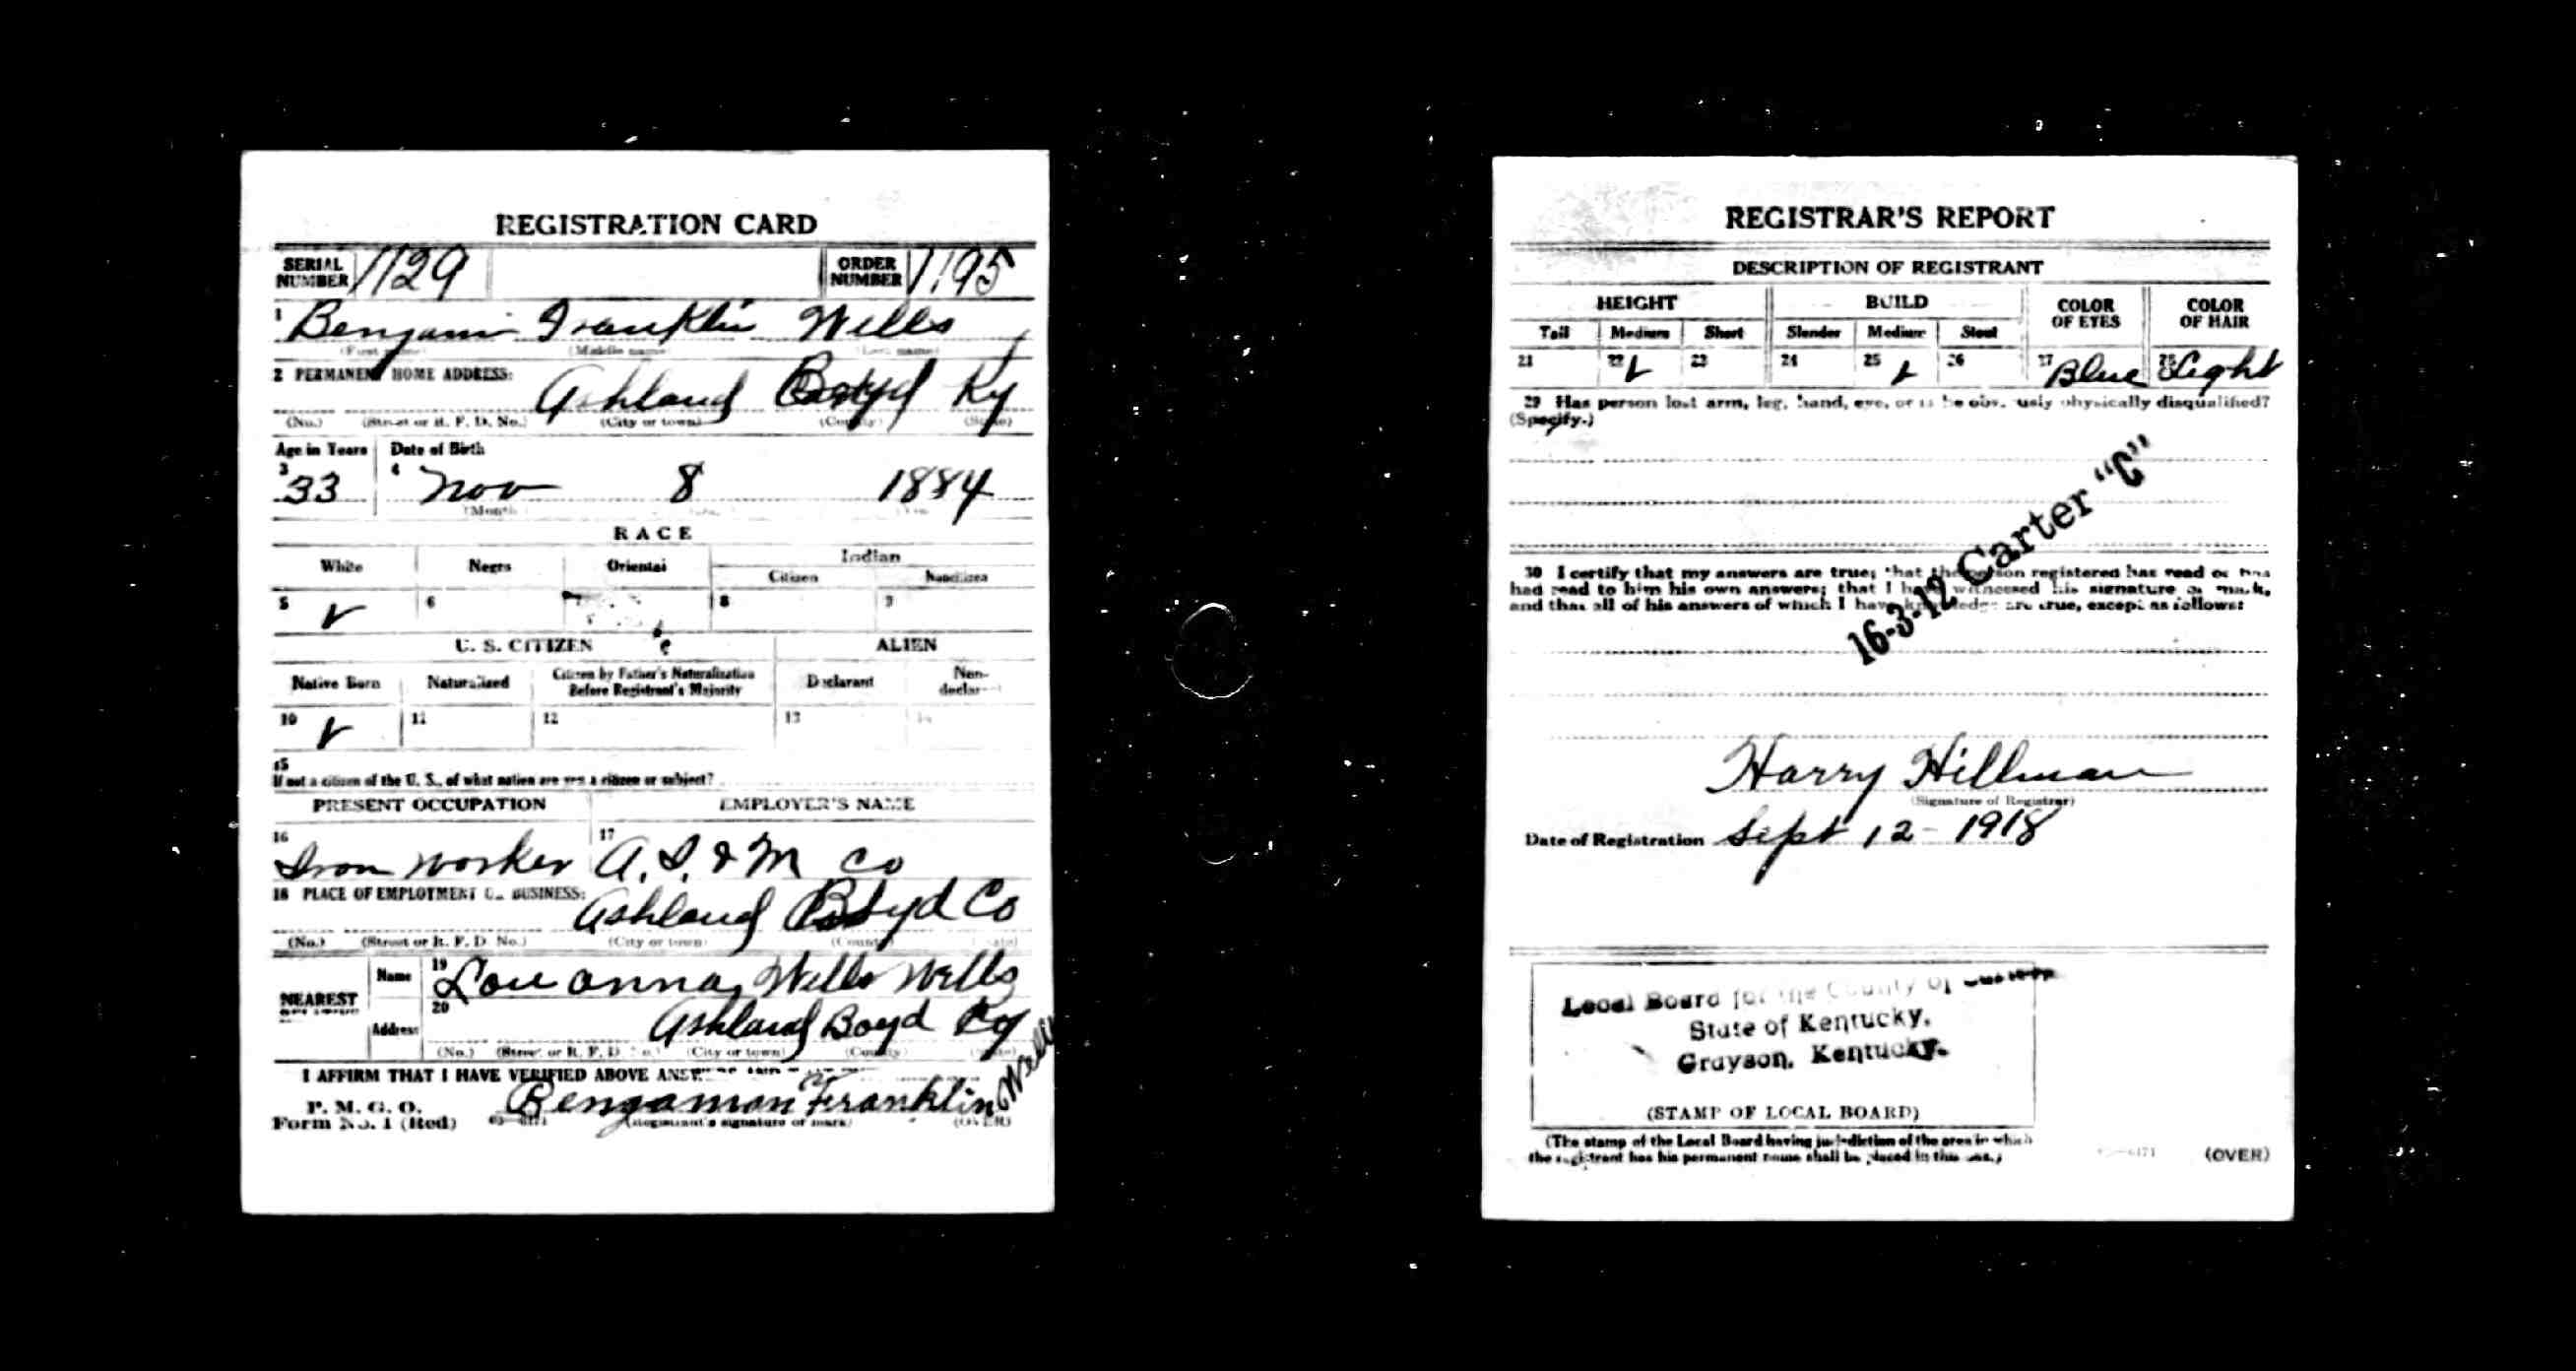 REGISTRATION CARD
SERIAL NUMBER 1129 ORDER NUMBER 1195
1 Benjami Franklin Wells
(First name) (Middle name) (Last name)
2 PERMANENT HOME ADDRESS:
Ashland Boyd Ky
(No.) (Street or R. F. D. No.) (City or town) (County) (State)
Age in Years Date of Birth
3 33 4 Nov 8 1884
(Month)
RACE
White Negro Oriental Indian
Citizen Noncitizen
5 ✓ 6 7 8 9
U. S. CITIZEN ALIEN
Native Born Naturalized Citizen by Father's Naturalization Before Registrant's Majority Declarant Non-declarant
10 ✓ 11 12 13 14
15
If not a citizen of the U. S., of what nation are you a citizen or subject?
PRESENT OCCUPATION EMPLOYER'S NAME
16 Iron Worker 17 A. I. & M Co
18 PLACE OF EMPLOYMENT OR BUSINESS:
Ashland Boyd Co
(No.) (Street or R. F. D. No.) (City or town) (County) (State)
NEAREST
Name 19 Lou anna Wells Wells
Address 20 Ashland Boyd Ky
(No.) (Street or R. F. D. No.) (City or town) (County) (State)
I AFFIRM THAT I HAVE VERIFIED ABOVE ANSWERS AND
P. M. G. O.
Form No. 1 (Red) Bengamon Franklin Wells
(Registrant's signature or mark) (OVER)
REGISTRAR'S REPORT
DESCRIPTION OF REGISTRANT
HEIGHT BUILD COLOR OF EYES COLOR OF HAIR
Tall Medium Short Slender Medium Stout
21 22 ✓ 23 24 25 ✓ 26 27 Blue 28 Light
29 Has person lost arm, leg, hand, eye, or is he obviously physically disqualified?
(Specify.)
16-3-12 Carter "C"
30 I certify that my answers are true; that the person registered has read or has
had read to him his own answers; that I have witnessed his signature or mark,
and that all of his answers of which I have knowledge are true, except as follows:
Harry Hillman
(Signature of Registrar)
Date of Registration Sept 12 - 1918
Local Board for the County of Carter
State of Kentucky,
Grayson, Kentucky.
(STAMP OF LOCAL BOARD)
(The stamp of the Local Board having jurisdiction of the area in which
the registrant has his permanent home shall be placed in this box.)
(OVER)